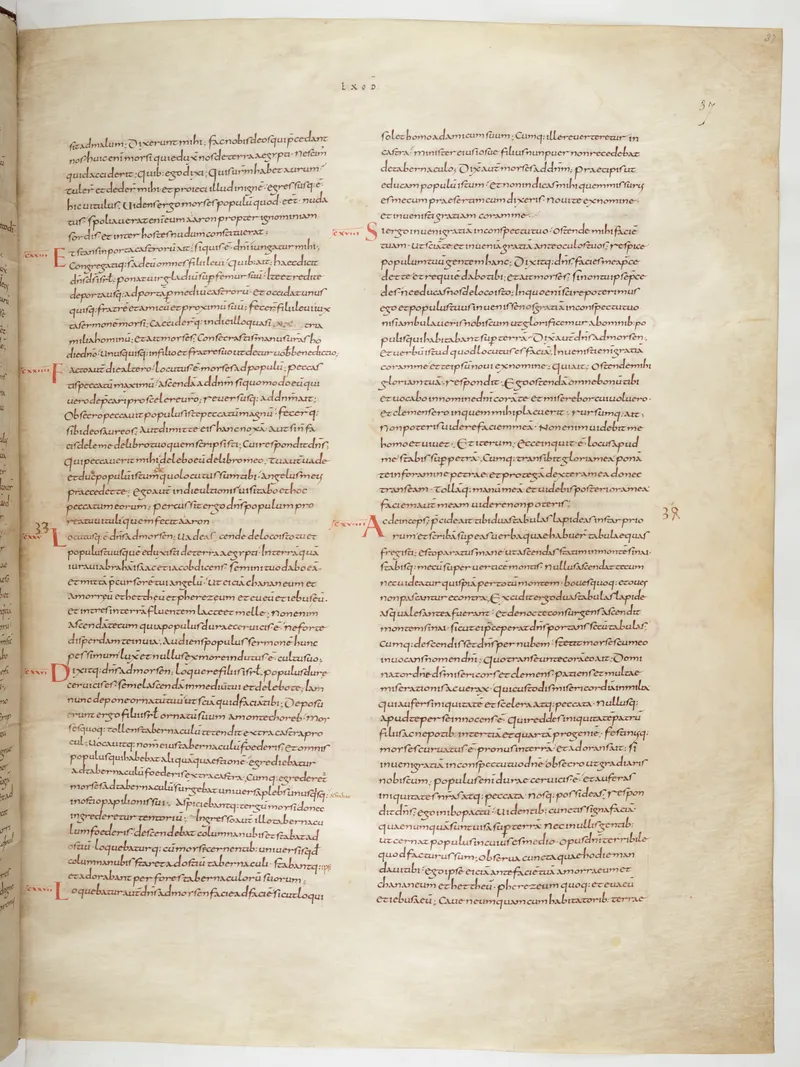 EXOD
37
sit ad malum; Dixerunt mihi, fac nobis deos qui p̄cedant
nos; huic enī moysi qui eduxit nos de terra aegypti nescim̄
quid acciderit; quib; ego dixi; Quis urm̄ habet aurum
tulert̄ et dedert̄ mihi et proieci illud in ignē egressusq; ē
hic uitulus; Uidens ergo moyses populū quod eēt nuda
tus spoliauerat enī eum aaron propter ignominiam
sordis et inter hostes nudum constituerat;
cxxiii E t stans in porta castrorū ait; si quis ē dn̄i iungatur mihi;
Congregatiq; s̄ ad eū omnes filii leui; quib; ait; haec dicit
dn̄s ds̄ isrl̄; ponat uir gladiū sup femur suū; Ite et redite
de porta usq; ad portā p mediū castrorū et occidat unus
quisq; fratrē et amicū et proximū suū; fecert̄ filii leui iux
ta sermonē moysi; Cecidertq; in die illo quasi tria
milia hominū; et ait moyses; Consecrastis manus uras ho
die dn̄o unusquisq; in filio et fratre suo ut detur uob benedictio;
cxxiiii F acto aut die altero locutus ē moyses ad populū; peccas
tis peccatū maximū; Ascendā ad dnm̄ si quo modo eū qui
uero dep̄cari pro scelere uro; reuersusq; ad dnm̄ ait;
Obsecro peccauit populus iste peccatū magnū fecertq;
sibi deos aureos; Aut dimitte eis hanc noxā aut si n̄ fa
cis dele me de libro tuo quem scripsisti; Cui respondit dn̄s
qui peccauerit mihi delebo eū de libro meo; Tu aut uade
et duc populū istum quo locutus sum tibi; Angelus meus
praecedet te; ego aut in die ultionis uisitabo et hoc
peccatum eorum; percussit ergo dn̄s populum pro
reatu uituli quem fecit aaron
33
cxxv L ocutusq; ē dn̄s ad moysen; Uade ascende de loco isto tu et
populus tuus quē eduxisti de terra aegypti; In terrā quā
iuraui abrahā isaac et iacob dicens; semini tuo dabo eā
et mittā p̄cursorē tui angelū; Ut eiciā chananeum et
amorreū et hettheū et pherezeum et eueū et iebuseū;
et intres in terrā fluentem lacte et melle; Non enim
ascendā tecum quia populus durae ceruicis ē ne forte
disperdam te in uia; Audiens populus sermonē hunc
pessimum luxit et nullus ex more indutus ē cultu suo;
cxxvi D ixitq; dn̄s ad moysen; Loquere filiis isrl̄ populus durae
ceruicis es; semel ascendā in medio tui et delebo te; Iam
nunc depone ornatū tuū ut sciā quid faciā tibi; Deposu
erunt ergo filii isrl̄ ornatū suum a monte horeb; Moy
ses quoq; tollens tabernaculū tetendit extra castra pro
cul; uocauitq; nom̄ eius tabernaculū foederis; et omnis
populus qui habebat aliquā quaestionē egrediebatur
ad tabernaculū foederis extra castra; Cumq; egrederet̄
moyses ad tabernaculū surgebat uniuersa plebs et unusquisq; stabat
in ostio papilionis sui; Aspiciebantq; tergū moysi donec
ingrederetur tentoriū; Ingresso aut illo tabernacu
lum foederis descendebat columna nubis et stabat ad
ostiū loquebaturq; cū moyse cernentib; uniuersis qđ
columna nubis staret ad ostiū tabernaculi; stabantq; ipsi
et adorabant per fores tabernaculorū suorum;
cxxvii L oquebatur aut dn̄s ad moysen facie ad faciē sicut loqui
solet homo ad amicum suum; Cumq; ille reuerteretur in
castra minister eius iosue filius nun puer non recedebat
de tabernaculo; Dixit aut moyses ad dnm̄; praecipis ut
educam populū istum et non indicas mihi quem missurus
es mecum praesertim cum dixeris noui te ex nomine
et inuenisti gratiam coram me;
cxxviii S i ergo inueni gratiā in conspectu tuo ostende mihi faciē
tuam ut sciā te et inueniā gratiā ante oculos tuos; respice
populum tuū gentem hanc; Dixitq; dn̄s; facies mea p̄ce
det te et requiē dabo tibi; et ait moyses; si non tu ipse p̄ce
des ne educas nos de loco isto; In quo enī scire poterimus
ego et populus tuus inuenisse nos gratiā in conspectu tuo
nisi ambulaueris nobiscum ut glorificemur ab omnib; po
pulis qui habitant super terrā; Dixit aut dn̄s ad moysen;
et uerbū istud quod locutus es faciā; Inuenisti enī gratiā
coram me et te ipsū noui ex nomine; qui ait; Ostende mihi
gloriam tuā; respondit; Ego ostendā omne bonū tibi
et uocabo in nomine dn̄i corā te et miserebor cui uoluero
et clemens ero in quem mihi placuerit; rursumq; ait;
Non poteris uidere faciem mea; Non enim uidebit me
homo et uiuet; Et iterum; Ecce inquit ē locus apud
me stabis sup petrā; Cumq; transibit gloria mea ponā
te in foramine petrae et protegā dextera mea donec
transeam; tollāq; manū meā et uidebis posteriora mea
faciem aut meam uidere non poteris;
cxxviiii A c deinceps; p̄cide ait tibi duas tabulas lapideas instar prio
38
rum et scribā super eas uerba quae habuert̄ tabulae quas
fregisti; esto paratus mane ut ascendas statim in monte sinai
stabisq; mecū super uerticē montis; nullus ascendat tecum
nec uideatur quispiā per totū montem; boues quoq; et oues
non pascantur e contra; Excidit ergo duas tabulas lapide
as quales ante fuerant et de nocte consurgens ascendit
montem sinai sicut ei p̄ceperat dn̄s portans secū tabulas;
Cumq; descendisset dn̄s per nubem stetit moyses cum eo
inuocans nomen dn̄i; quo transeunte corā eo ait; Domi
nator dn̄e ds̄ misericors et clemens patiens et multae
miserationis ac uerax; qui custodis misericordiā in milia
qui aufers iniquitatē et scelera atq; peccata; nullusq;
apud te per se innocens ē; qui reddis iniquitatē patrū
filiis ac nepotib; in tertiā et quartā progeniē; festinusq;
moyses curuatus ē pronus in terrā et adorans ait; si
inueni gratiā in conspectu tuo dn̄e obsecro ut gradiaris
nobiscum; populus enī durae ceruicis ē et auferas
iniquitates nr̄as atq; peccata nosq; possideas; respon
dit dn̄s; ego inibo pactū uidentib; cunctis signa faciā
quae numquā sunt uisa sup terrā nec in ullis gentib;
ut cernat populus in cuius es medio opus dn̄i terribile
quod facturus sum; obserua cuncta quae hodie man
do tibi; ego ipse eiciā ante faciē tuā amorraeum et
chananeum et hettheū; pherezeum quoq; et eueū
et iebusaeū; Caue ne umquam cum habitatorib; terrae